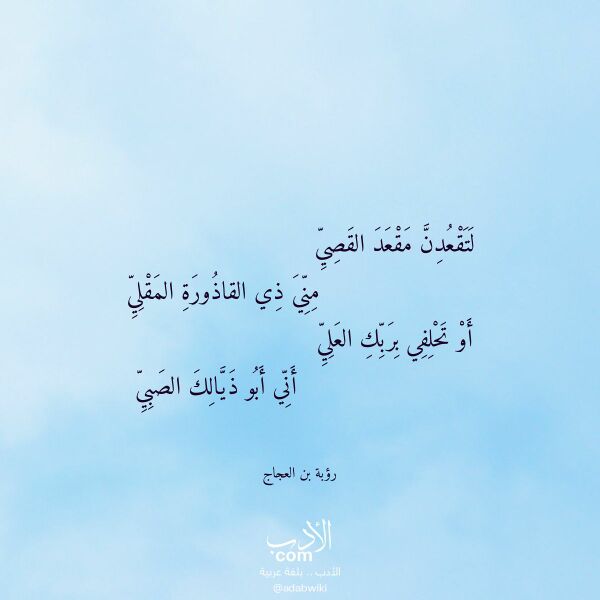 لَتَقْعُدِنَّ مَقْعَدَ القَصِيِّ
مِنِّيَ ذِي القاذُورَةِ المَقْلِيِّ
أَوْ تَحْلِفِي بِرَبِّكِ العَلِيِّ
أَنِّي أَبُو ذَيَّالِكَ الصَبِيِّ
رؤبة بن العجاج
الأدب
com
الأدب .. بلغة عربية
@adabwiki